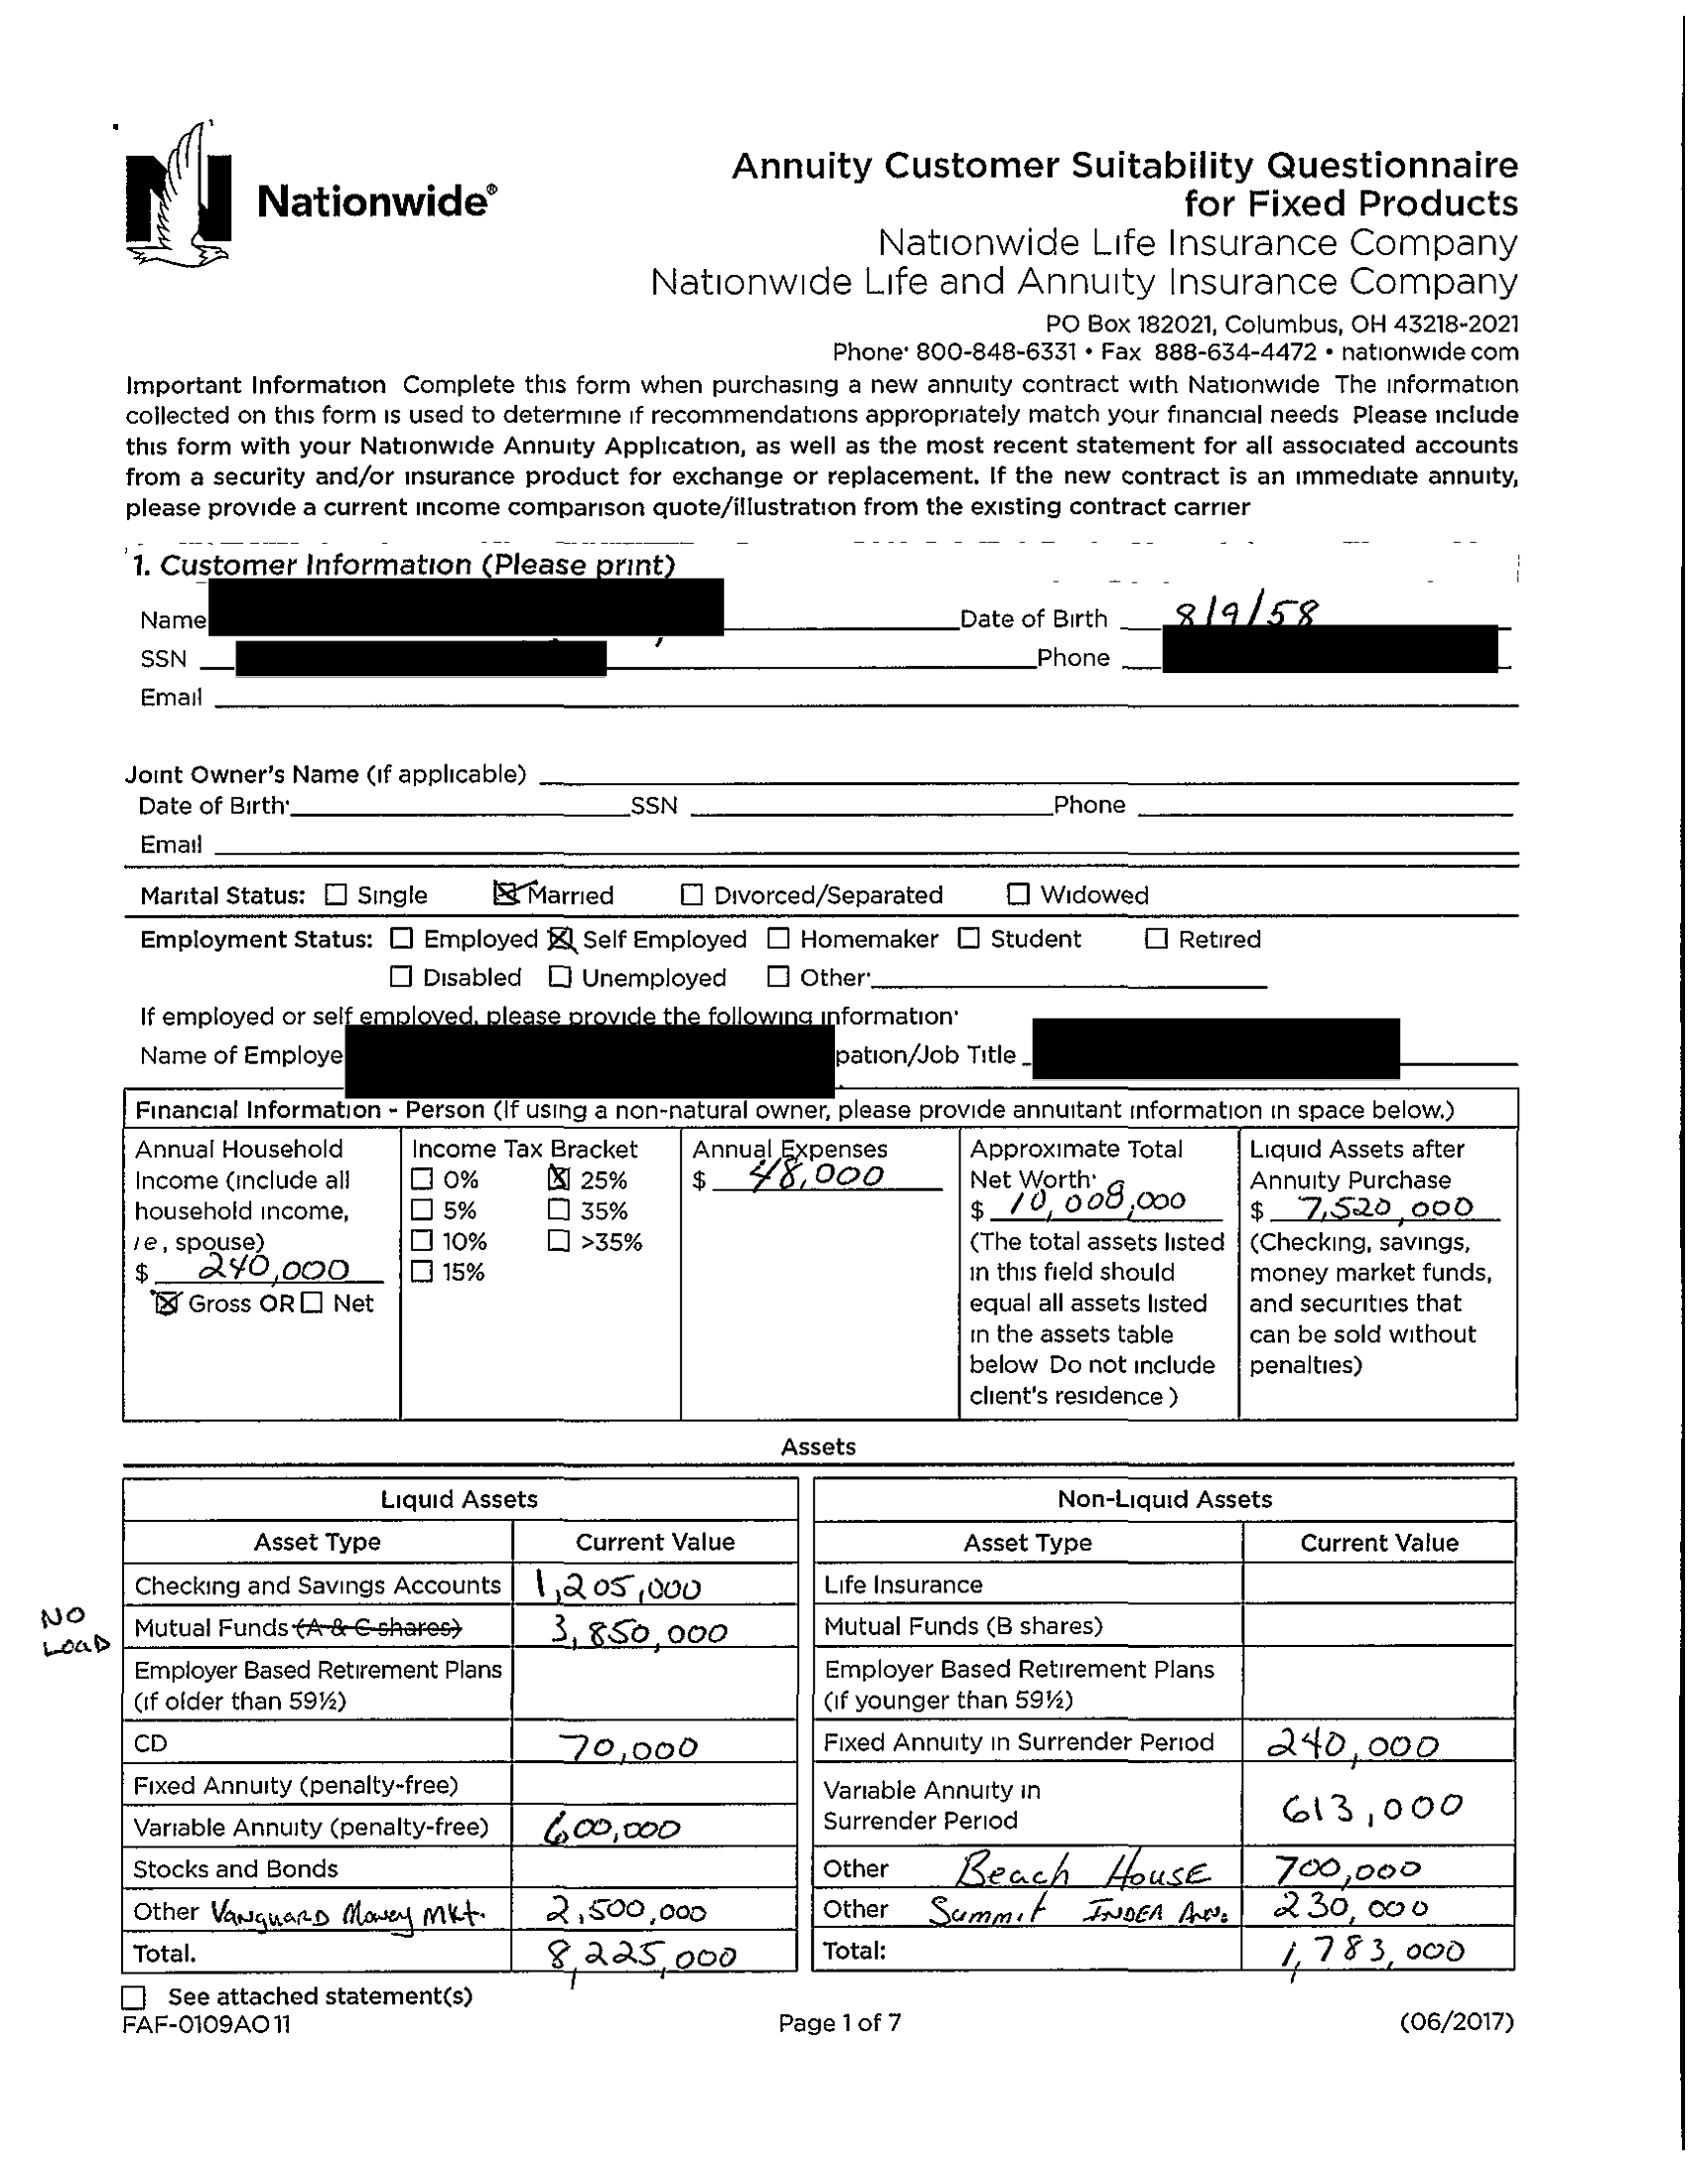 Nationwide®
Annuity Customer Suitability Questionnaire
for Fixed Products
Nationwide Life Insurance Company
Nationwide Life and Annuity Insurance Company
PO Box 182021, Columbus, OH 43218-2021
Phone· 800-848-6331 • Fax 888-634-4472 • nationwide com
Important Information Complete this form when purchasing a new annuity contract with Nationwide The information
collected on this form is used to determine if recommendations appropriately match your financial needs Please include
this form with your Nationwide Annuity Application, as well as the most recent statement for all associated accounts
from a security and/or insurance product for exchange or replacement. If the new contract is an immediate annuity,
please provide a current income comparison quote/illustration from the existing contract carrier
1. Customer Information (Please print)
Name Date of Birth 8/9/58
SSN Phone
Email
Joint Owner's Name (if applicable)
Date of Birth· SSN Phone
Email
Marital Status: ☐ Single ☒ Married ☐ Divorced/Separated ☐ Widowed
Employment Status: ☐ Employed ☒ Self Employed ☐ Homemaker ☐ Student ☐ Retired
☐ Disabled ☐ Unemployed ☐ Other·
If employed or self employed, please provide the following information·
Name of Employe pation/Job Title
Financial Information - Person (If using a non-natural owner, please provide annuitant information in space below.)
Annual Household
Income (include all
household income,
ie, spouse)
$ 240,000
☒ Gross OR ☐ Net
Income Tax Bracket
☐ 0% ☒ 25%
☐ 5% ☐ 35%
☐ 10% ☐ >35%
☐ 15%
Annual Expenses
$ 48,000
Approximate Total
Net Worth·
$ 10,008,000
(The total assets listed
in this field should
equal all assets listed
in the assets table
below Do not include
client's residence )
Liquid Assets after
Annuity Purchase
$ 7,520,000
(Checking, savings,
money market funds,
and securities that
can be sold without
penalties)
Assets
Liquid Assets
Asset Type Current Value
Checking and Savings Accounts 1,205,000
NO
LOAD
Mutual Funds (A & C shares) 3,850,000
Employer Based Retirement Plans
(if older than 59½)
CD 70,000
Fixed Annuity (penalty-free)
Variable Annuity (penalty-free) 600,000
Stocks and Bonds
Other Vanguard Money Mkt. 2,500,000
Total. 8,225,000
Non-Liquid Assets
Asset Type Current Value
Life Insurance
Mutual Funds (B shares)
Employer Based Retirement Plans
(if younger than 59½)
Fixed Annuity in Surrender Period 240,000
Variable Annuity in
Surrender Period 613,000
Other Beach House 700,000
Other Summit Ann. 230,000
Total: 1,783,000
☐ See attached statement(s)
FAF-0109AO 11
Page 1 of 7
(06/2017)